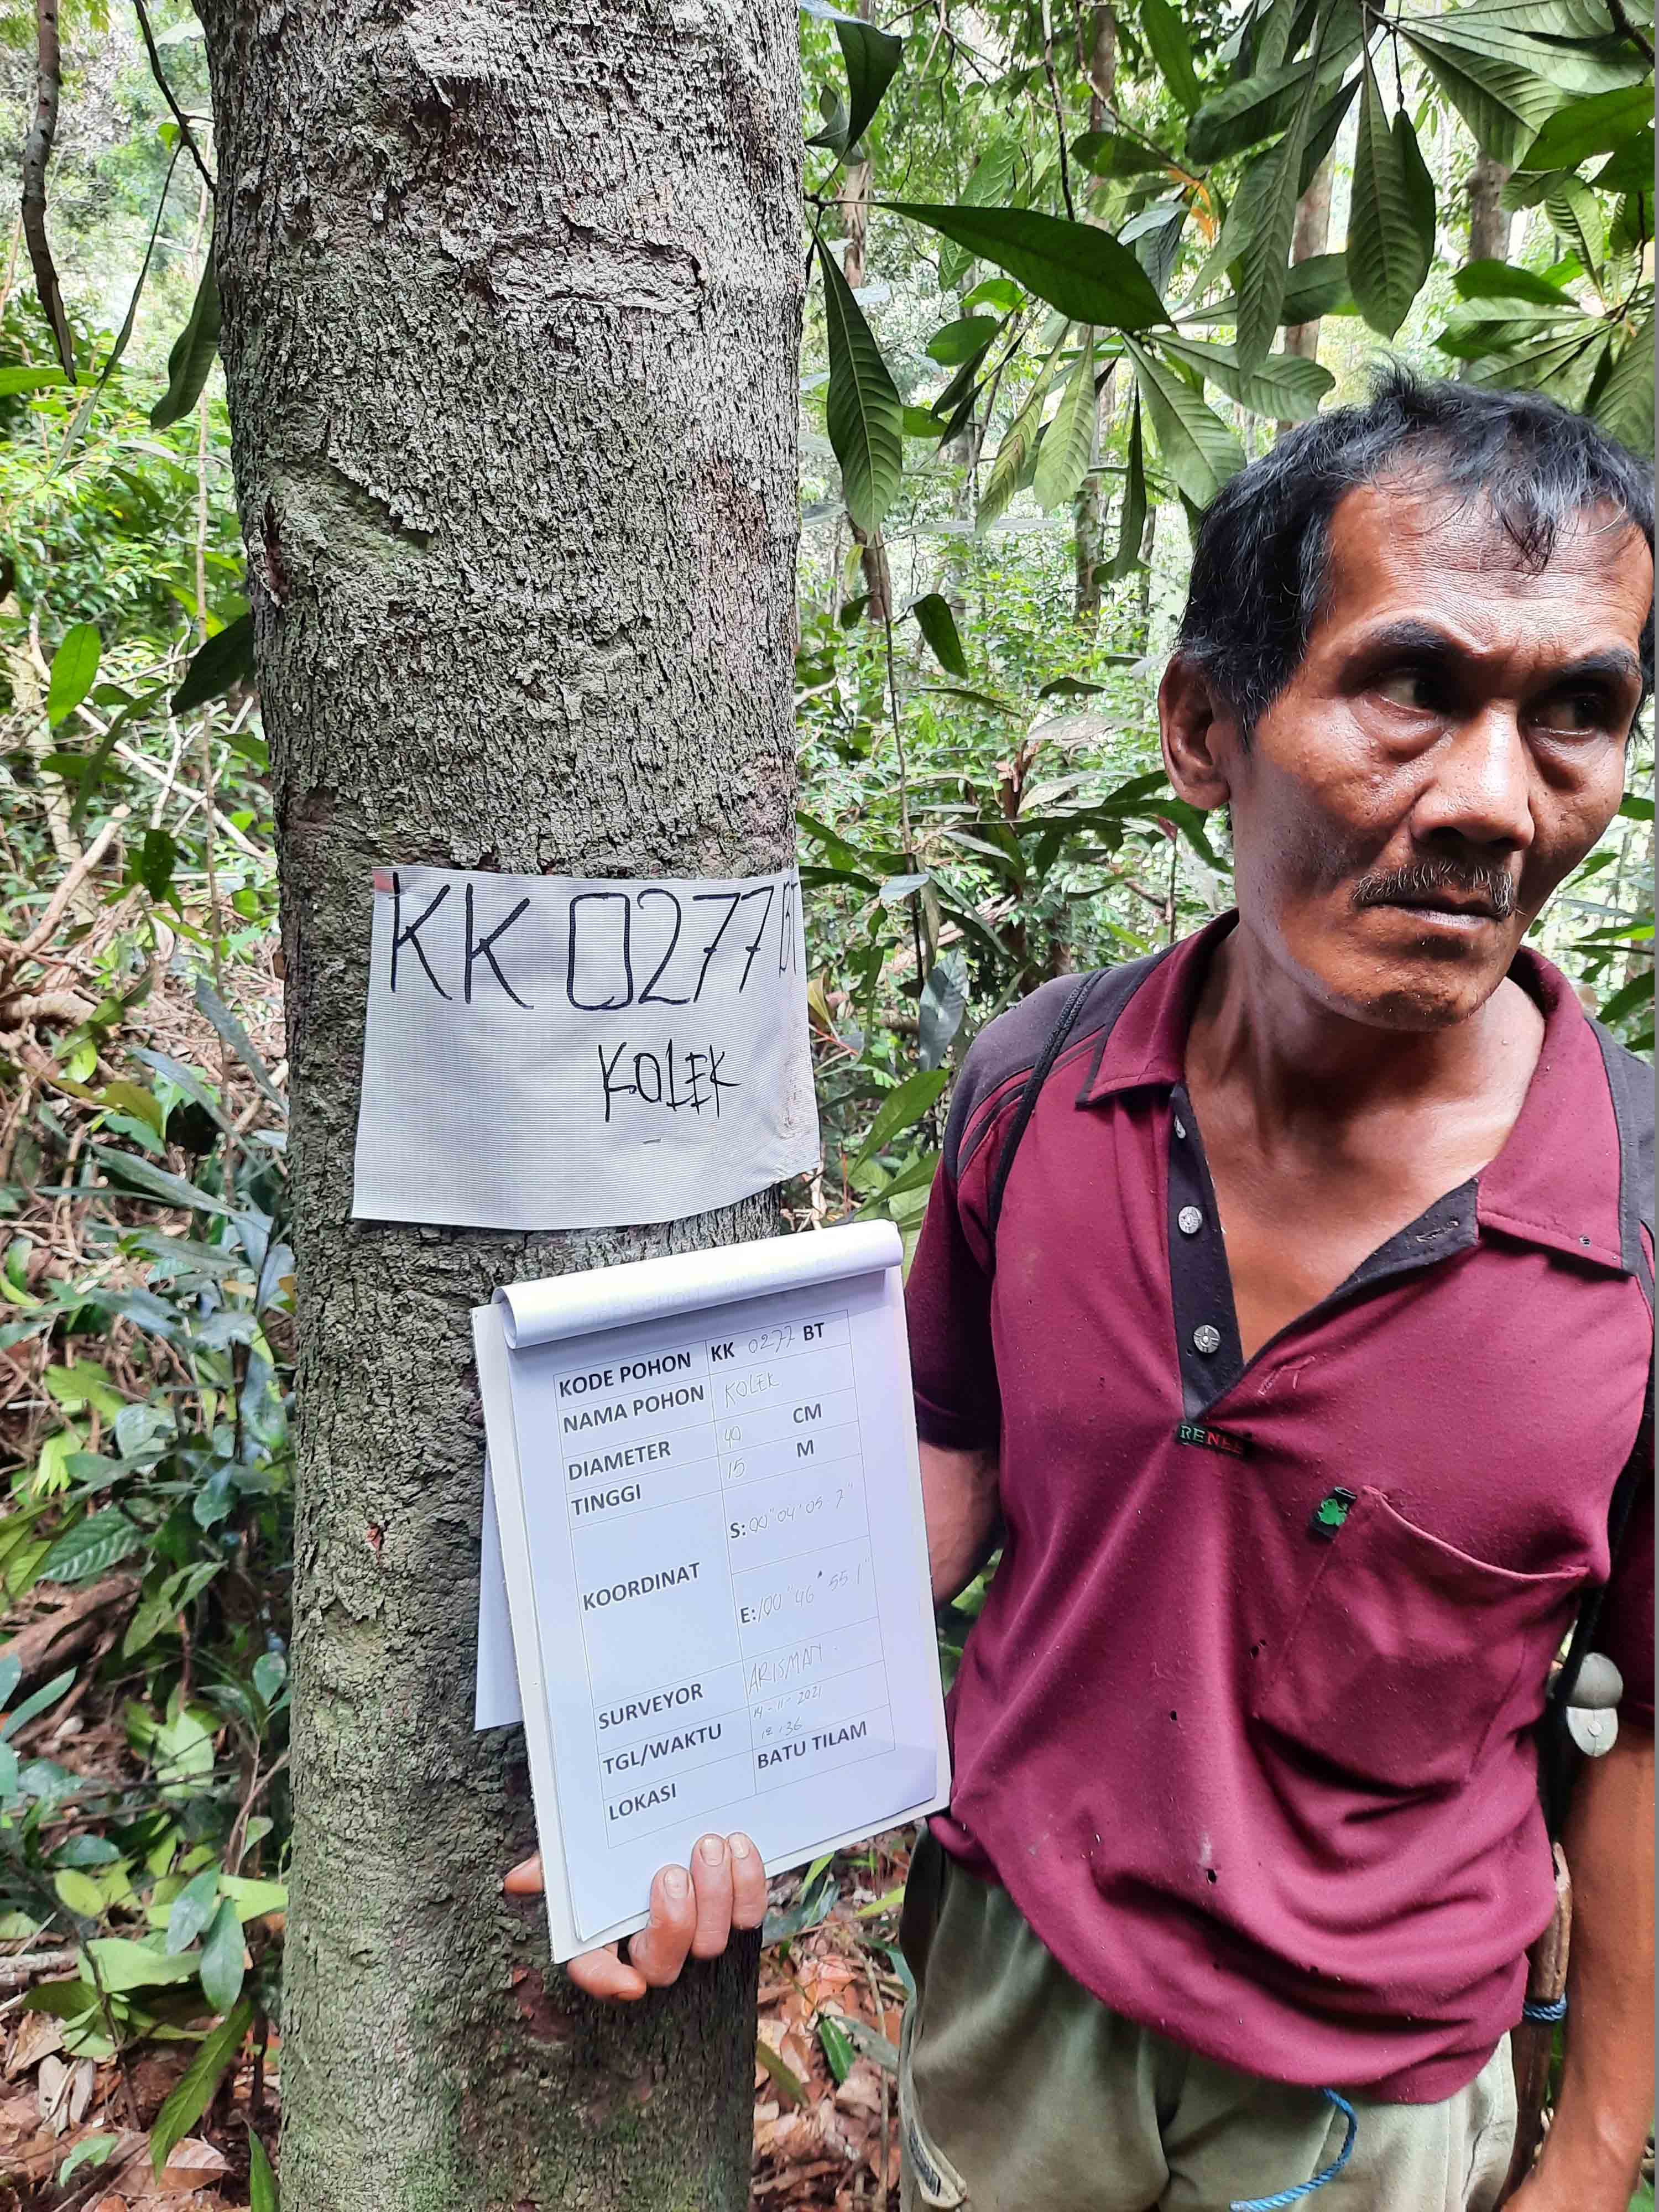 KK 0277 BT
KOLEK
KODE POHON KK 0277 BT
NAMA POHON KOLEK
DIAMETER 40 CM
TINGGI 15 M
KOORDINAT
S: 00° 04' 05 7"
E: 100° 46' 55 1"
SURVEYOR ARISMAN
TGL/WAKTU 14-11-2021
12:36
LOKASI BATU TILAM
RENEE